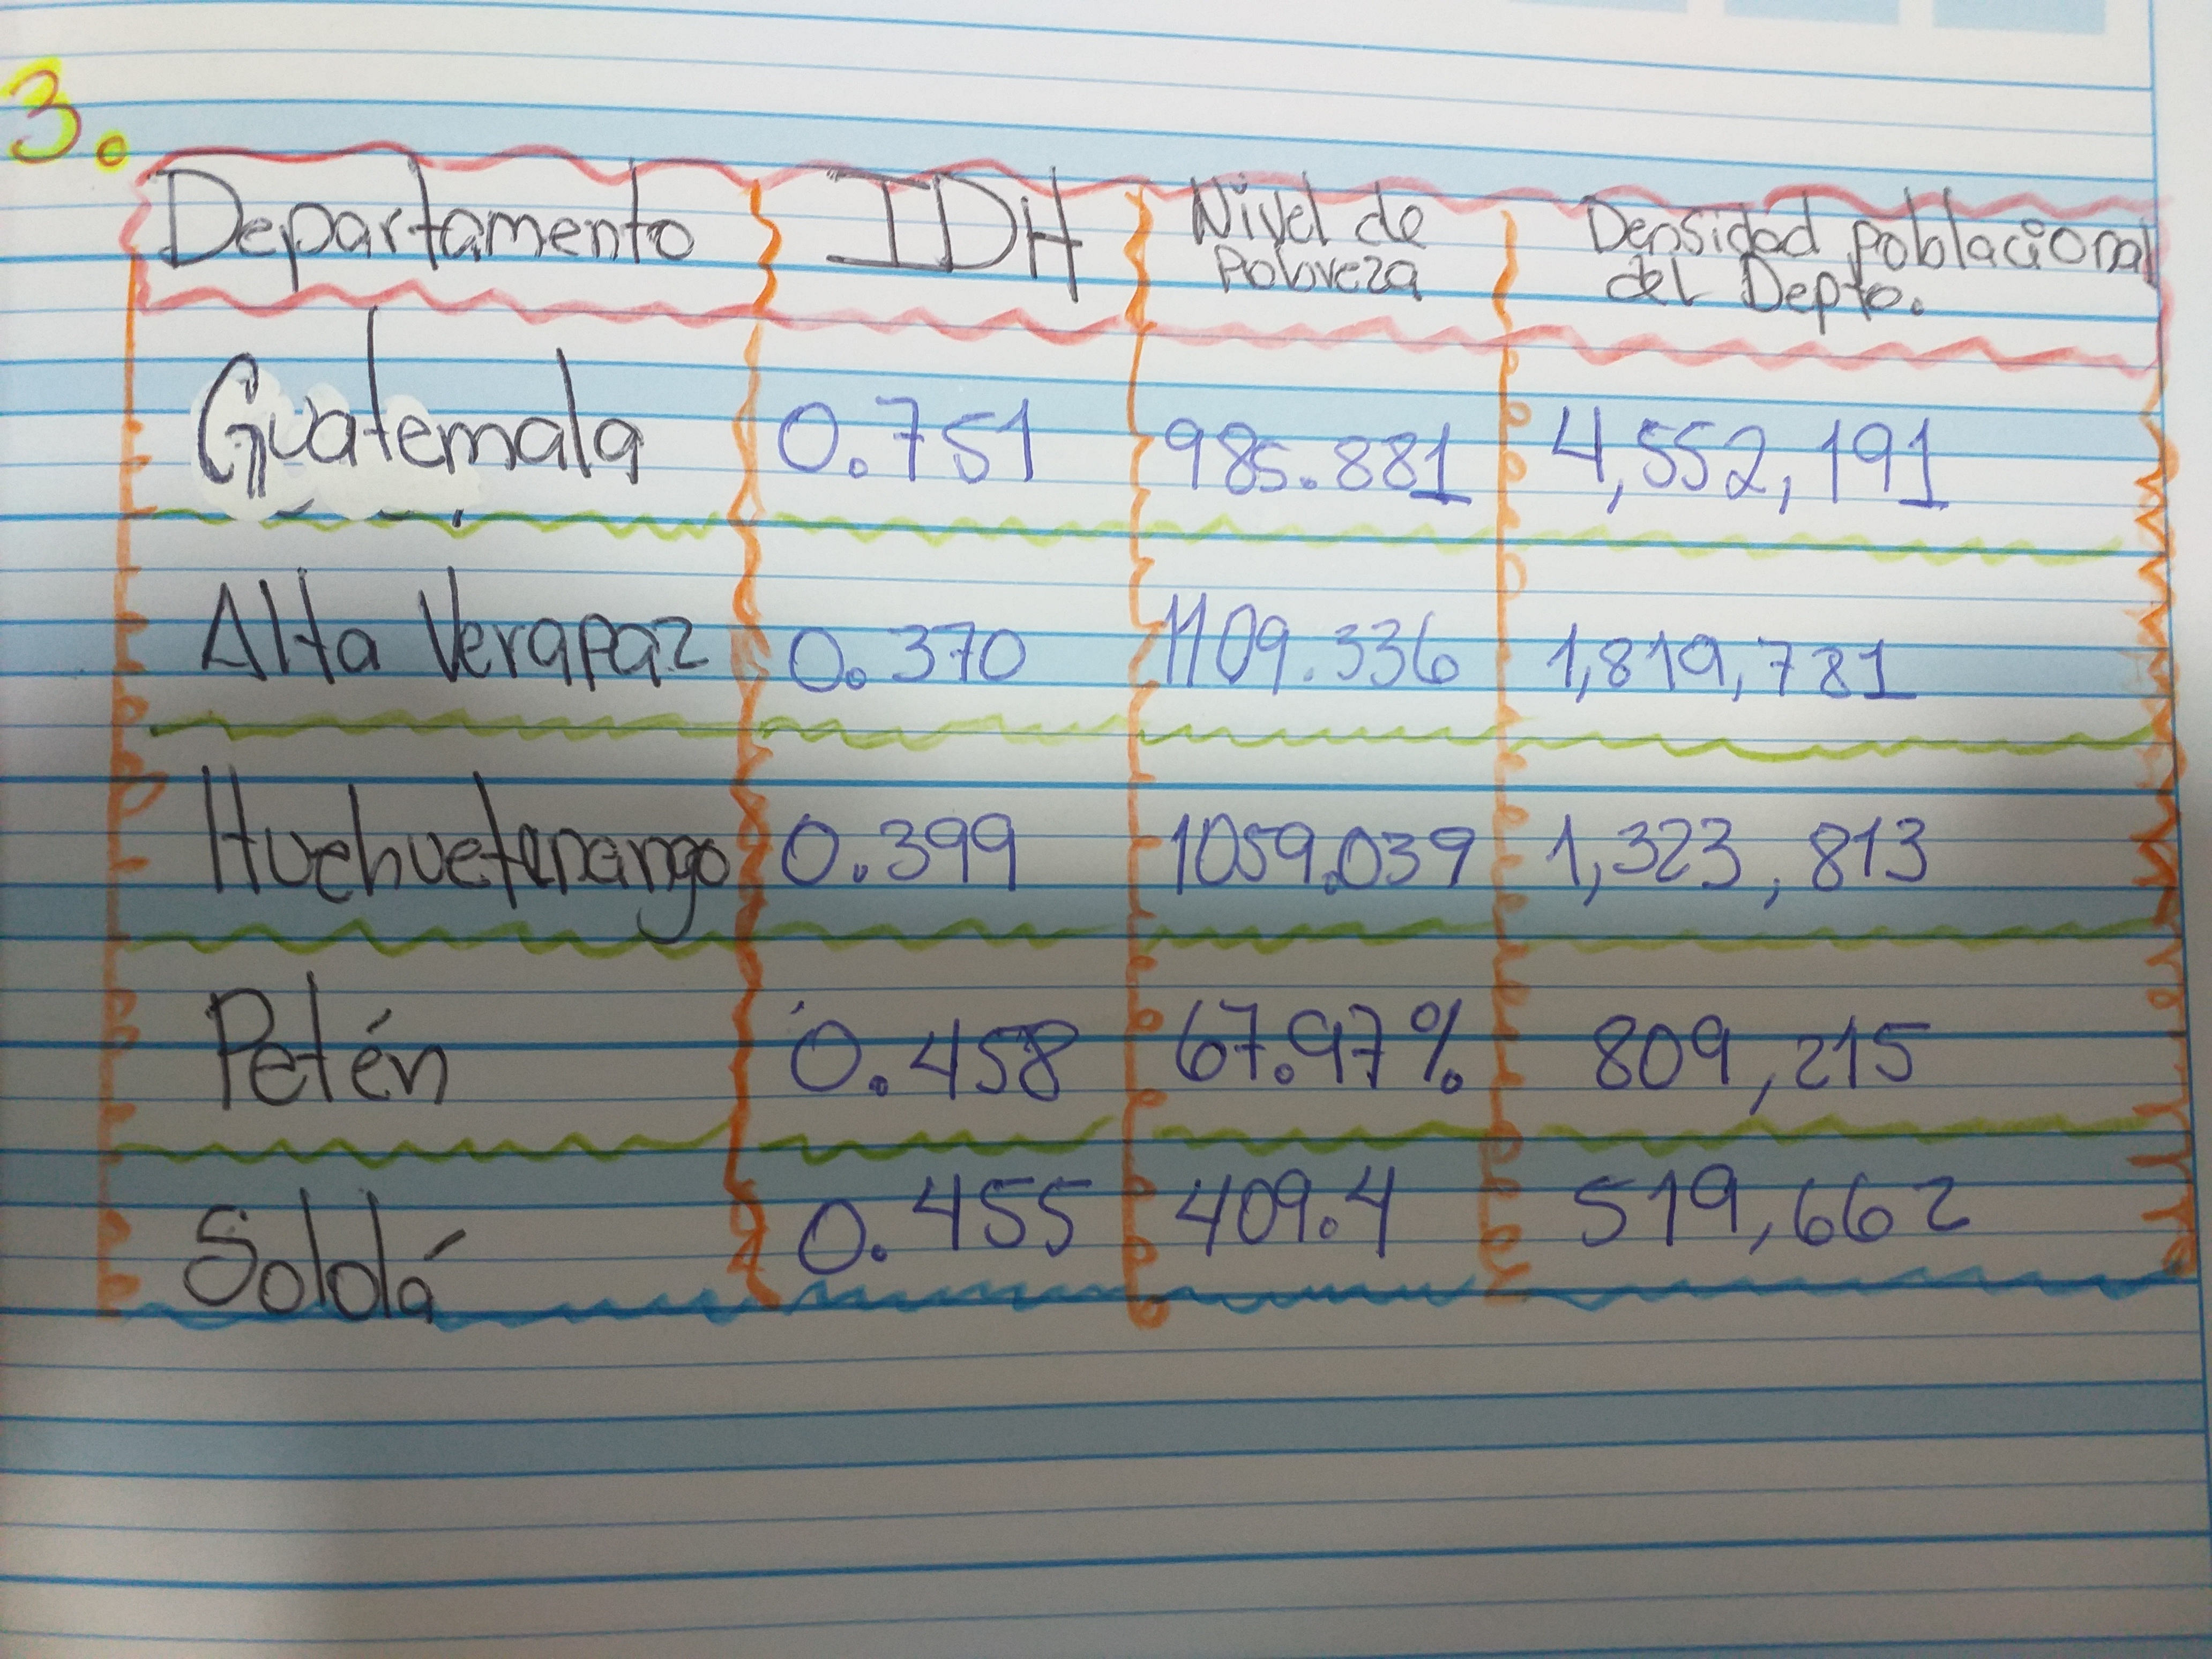 3.
Departamento IDH Nivel de Pobreza Densidad poblacional del Depto.
Guatemala 0.751 985.881 4,552,191
Alta Verapaz 0.370 1109.336 1,819,781
Huehuetenango 0.399 1059.039 1,323,813
Petén 0.458 67.97% 809,215
Sololá 0.455 409.4 519,662